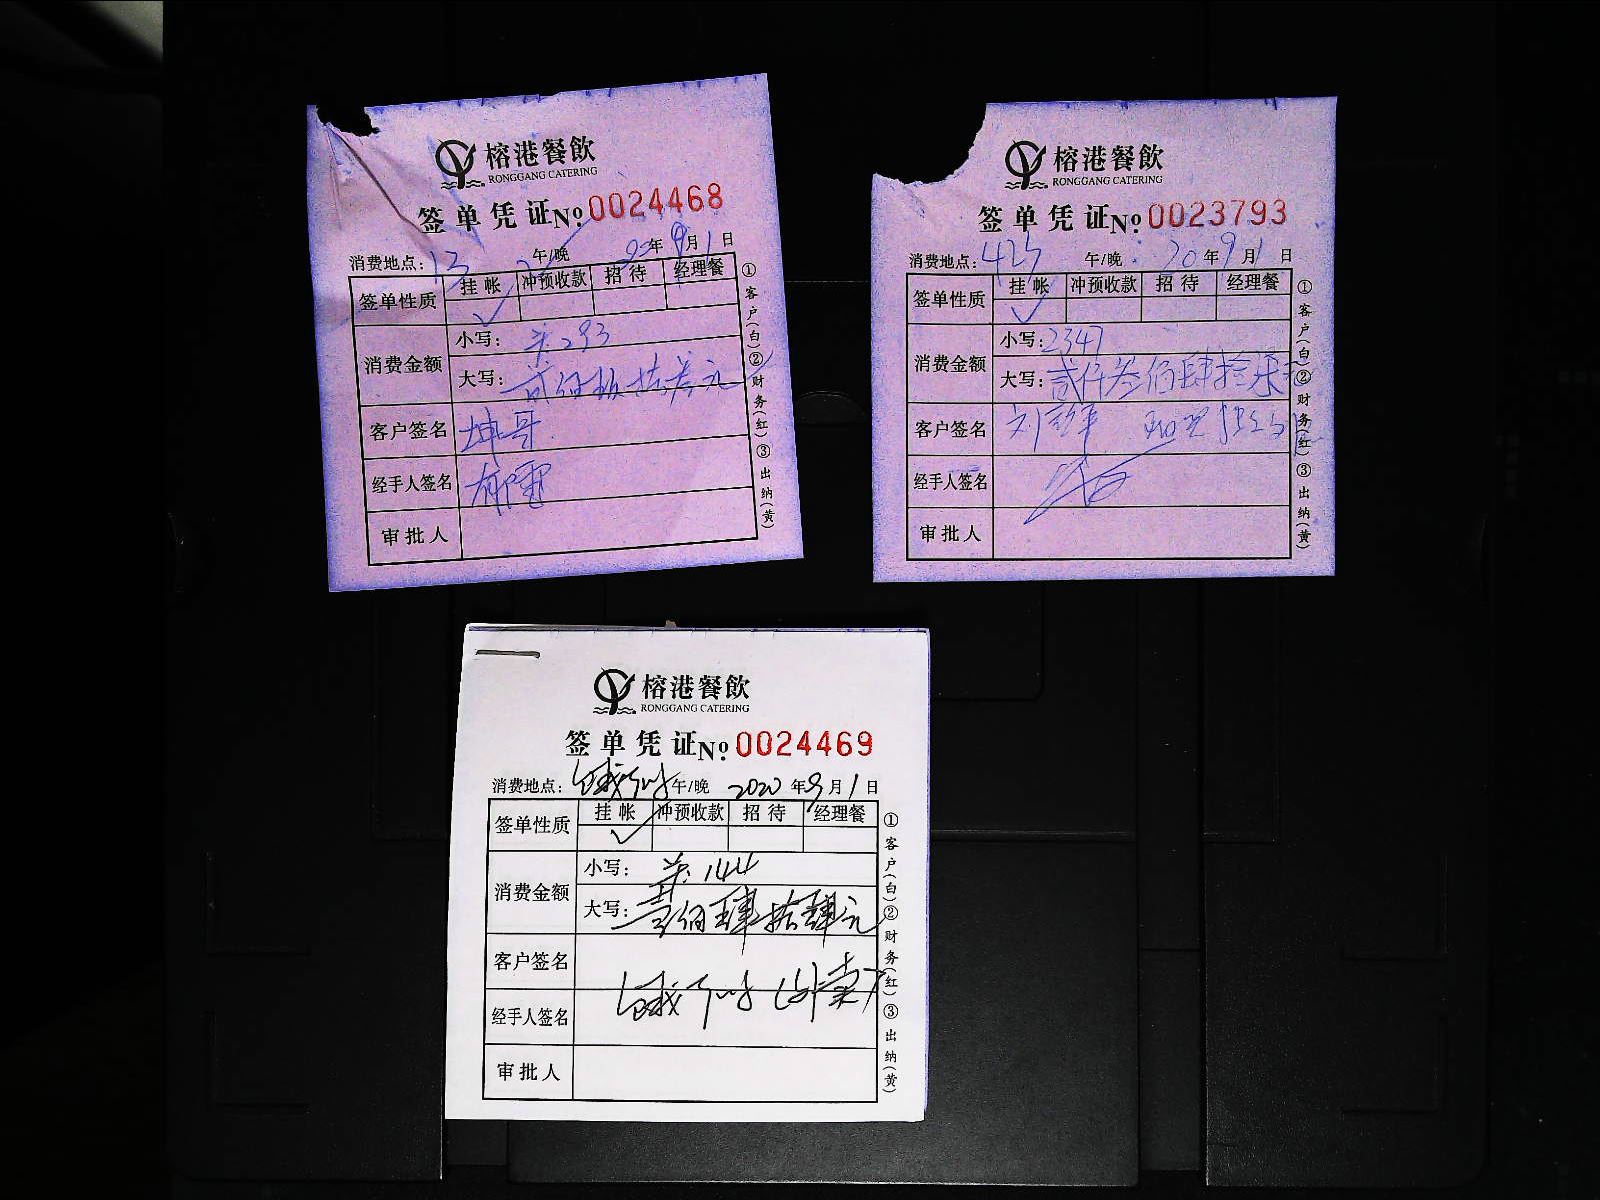 榕港餐飲
RONGGANG CATERING
签单凭证№0024468
消费地点：13 午/晚 20年9月1日
签单性质 挂帐 冲预收款 招待 经理餐
✓
消费金额 小写：共293
大写：贰佰玖拾叁元
客户签名 坤哥
经手人签名
审批人
①客户(白)②财务(红)③出纳(黄)
榕港餐飲
RONGGANG CATERING
签单凭证№0023793
消费地点：425 午/晚： 20年9月1日
签单性质 挂帐 冲预收款 招待 经理餐
✓
消费金额 小写：2347
大写：贰仟叁佰肆拾柒
客户签名
经手人签名
审批人
①客户(白)②财务(红)③出纳(黄)
榕港餐飲
RONGGANG CATERING
签单凭证№0024469
消费地点：饿了么 午/晚 2020年9月1日
签单性质 挂帐 冲预收款 招待 经理餐
✓
消费金额 小写：共144
大写：壹佰肆拾肆元
客户签名
饿了么（外卖）
经手人签名
审批人
①客户(白)②财务(红)③出纳(黄)